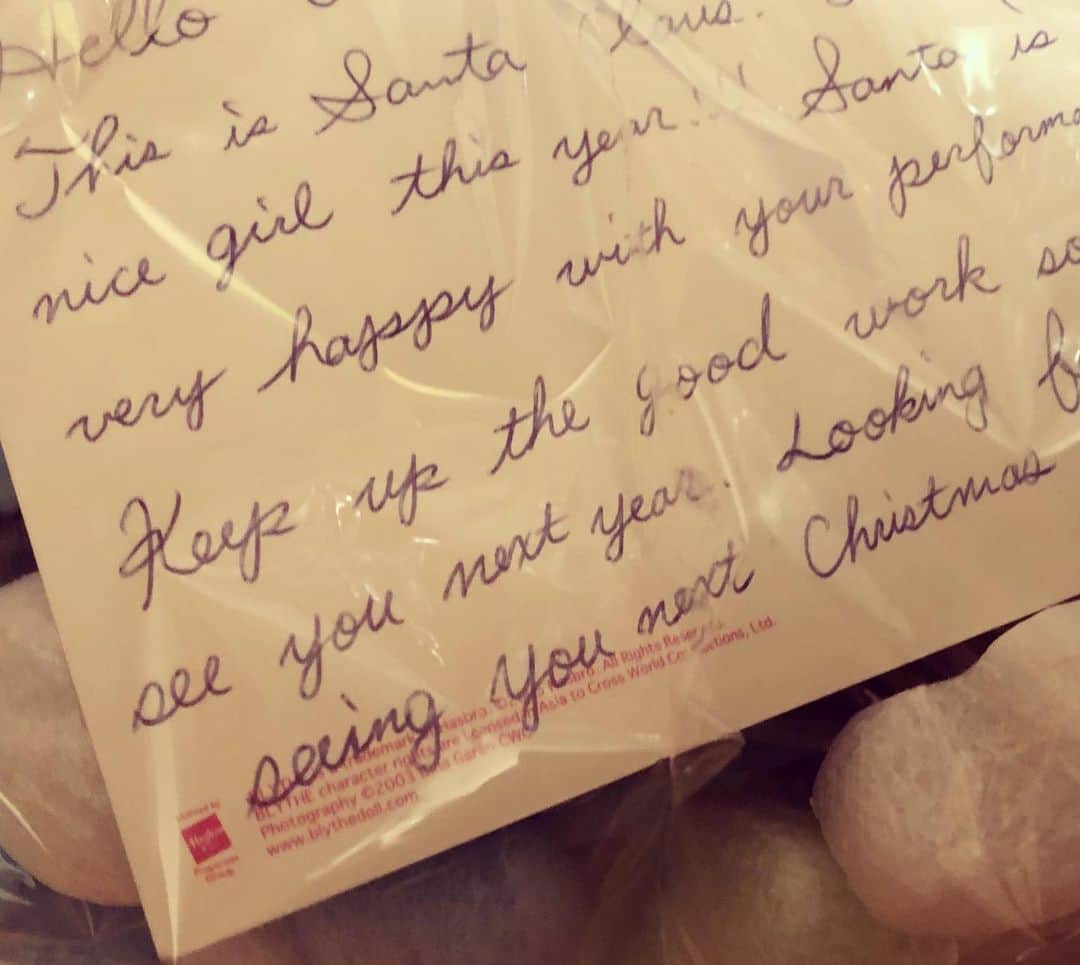 Hello
This is Santa
nice girl this year!! Santa is
very happy with your performa
Keep up the good work so
see you next year. Looking
seeing you next Christmas
Hasbro. All Rights Reser
BLYTHE character rights are licensed in Asia to Cross World Co ctions, Ltd.
Photography ©2003 Gina Garan CWC
www.blythedoll.com
Licensed by
Hasbro
Properties
Group